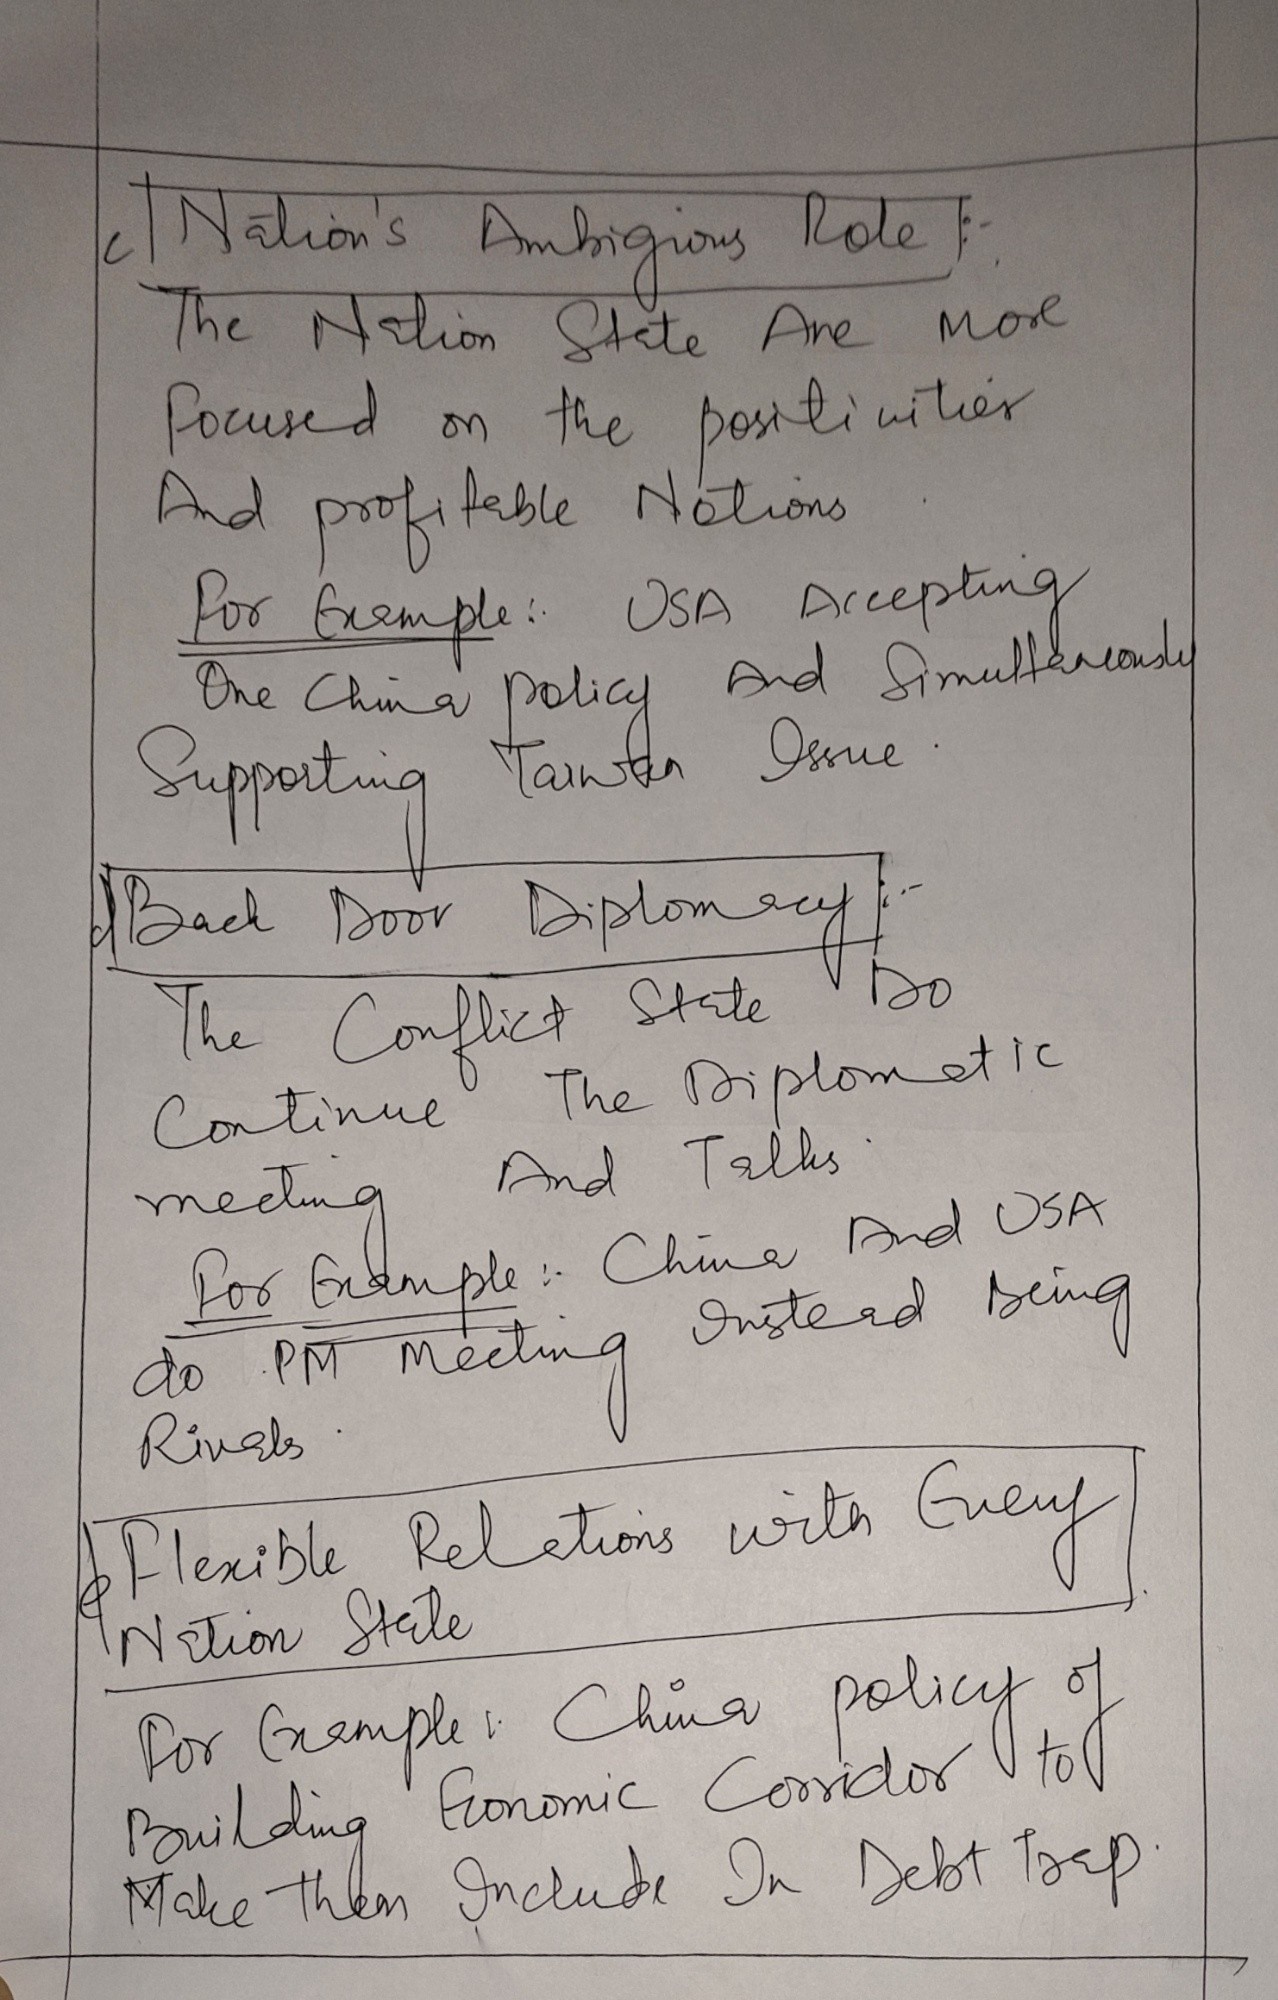 c) Nation's Ambigious Role :-
The Nation State Are More
Focused on the positivities
And profitable Nations
For Example :- USA Accepting
One China policy And Simultaneously
Supporting Taiwan Issue.
d) Back Door Diplomacy :-
The Conflict State Do
Continue The Diplomatic
meeting And Talks.
For Example :- China And USA
do PM Meeting Instead Being
Rivals.
e) Flexible Relations with Every
Nation State
For Example :- China policy of
Building Economic Corridor to
Make them Include In Debt Trap.